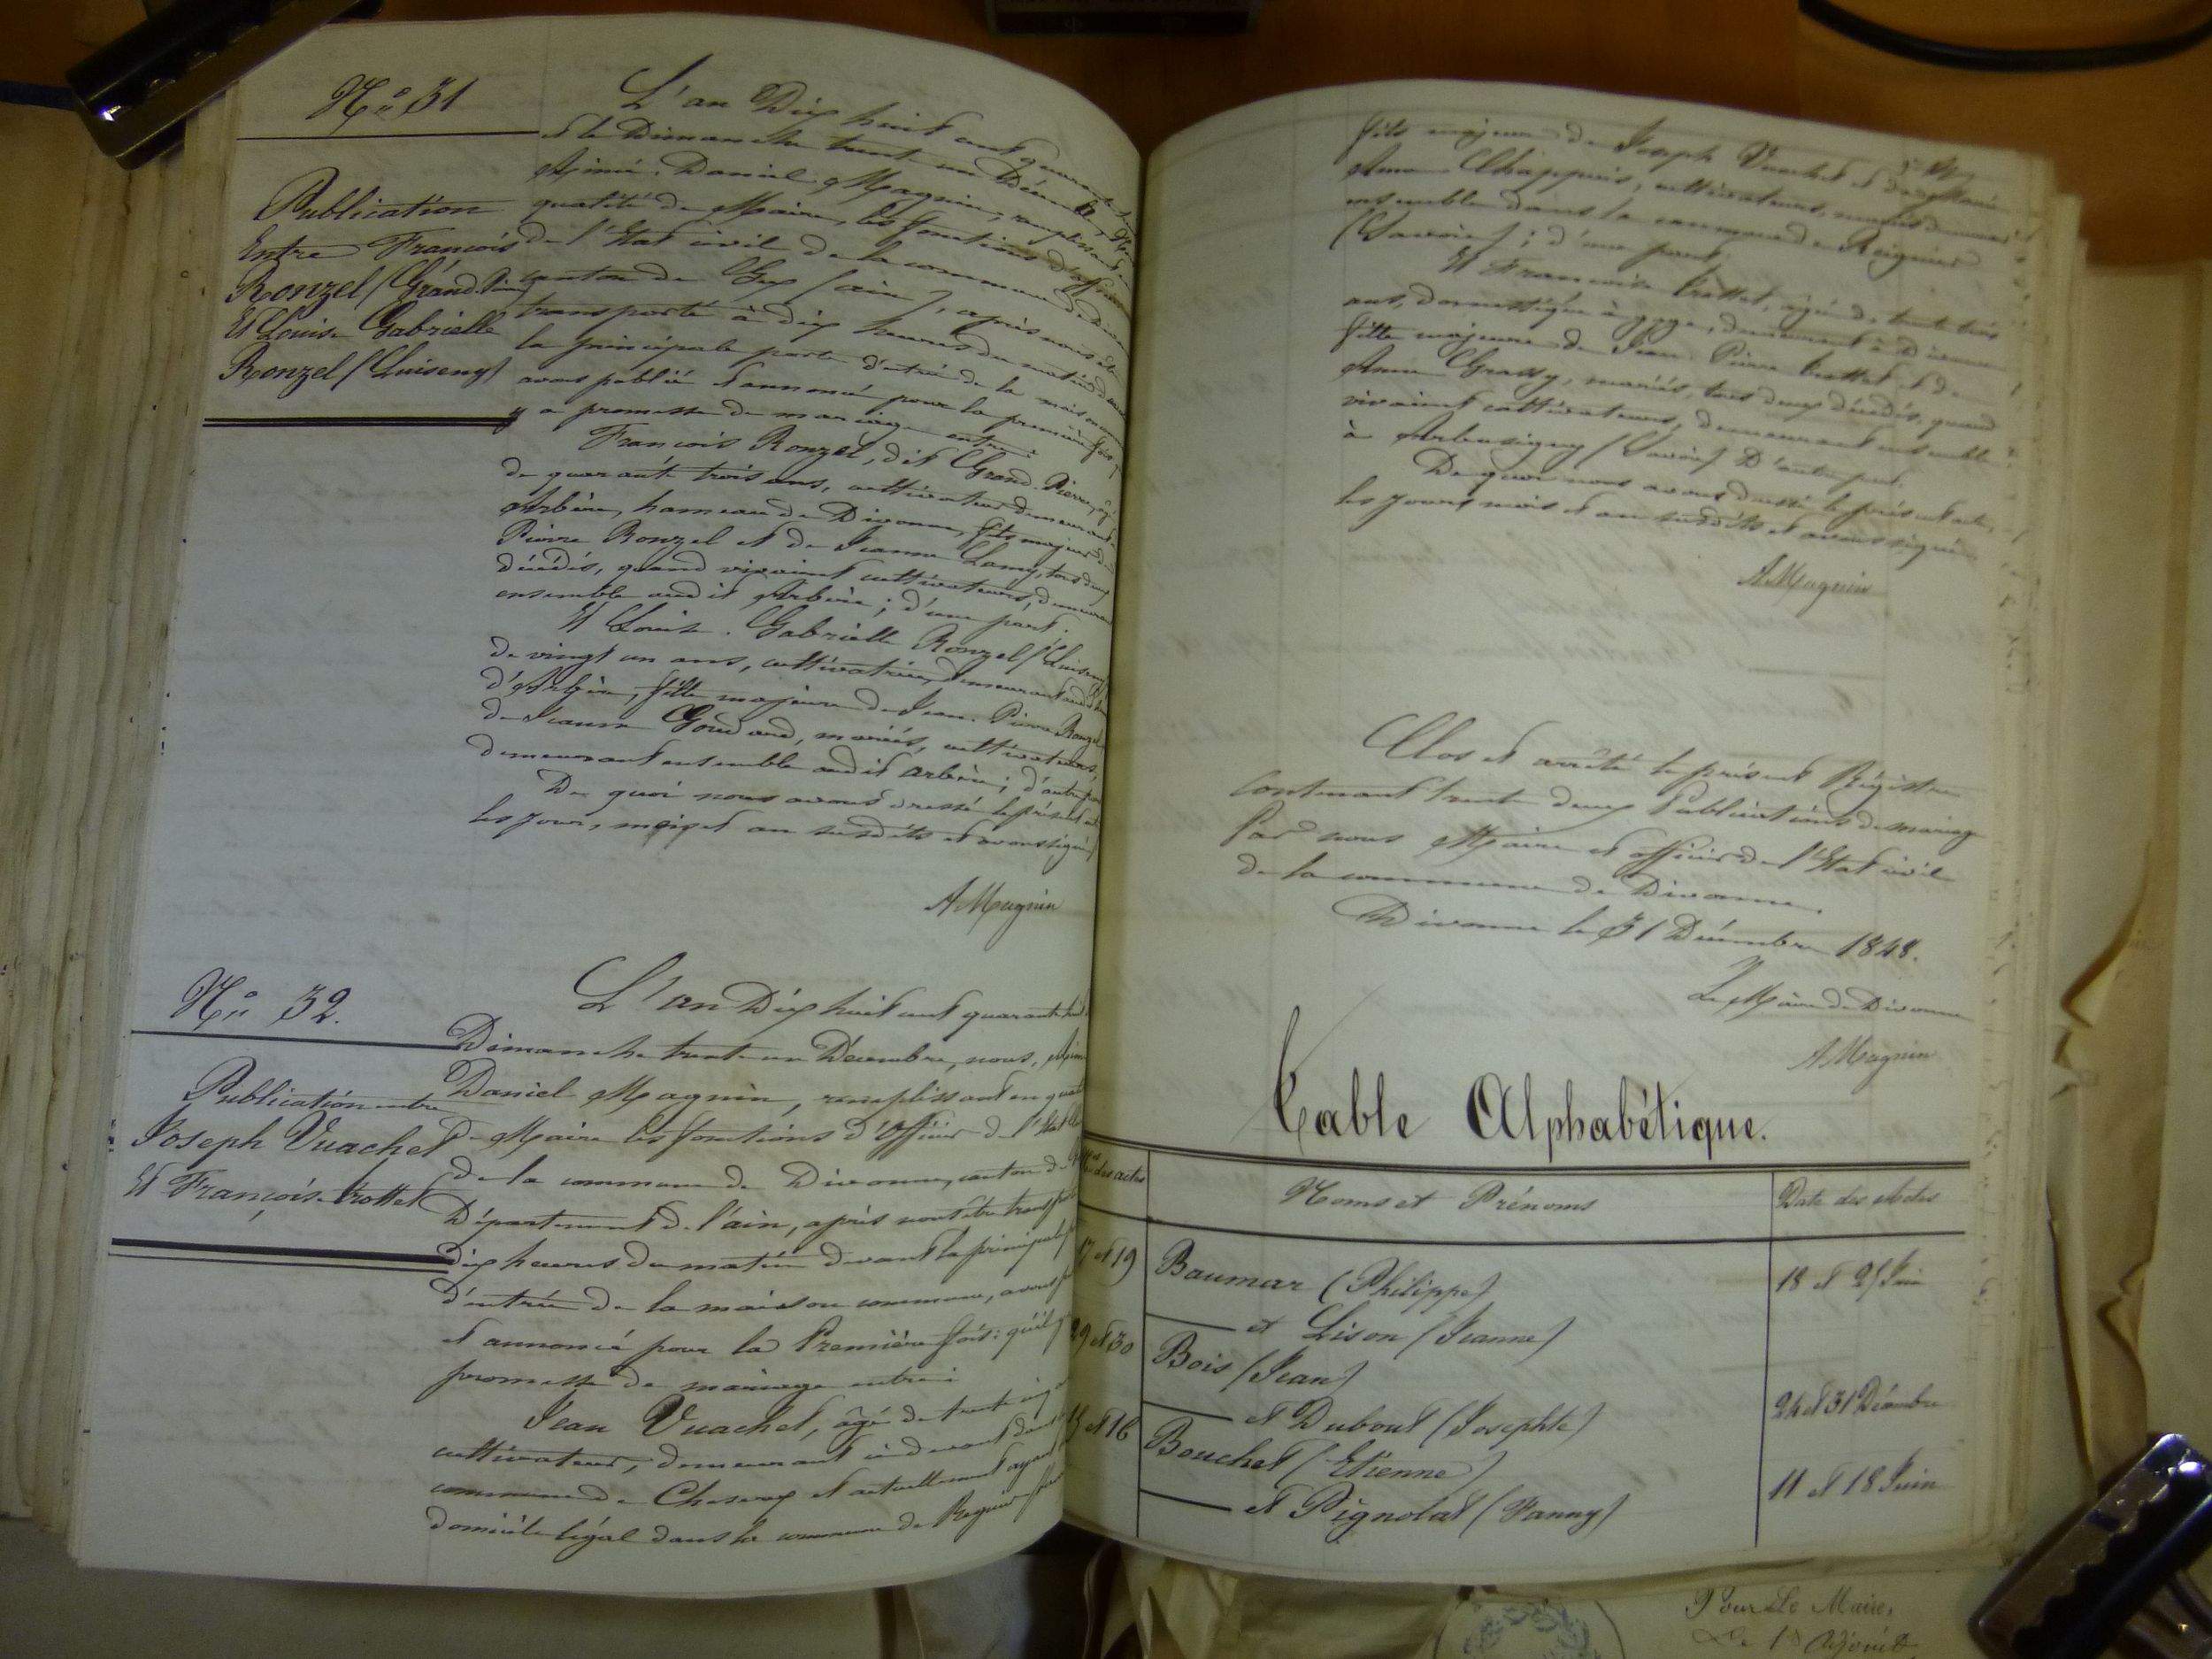 Nº 31
Publication
Entre François
Ronzel (Grand-Pierre)
Et Louise Gabrielle
Ronzel (Luiseny)
L'an Dix huit cent quarante
et le Dimanche trente un Décembre, Nous
Aimé Daniel Magnin, remplissant
qualité de Maire, les fonctions d'officier
de l'Etat civil de la commune de Divonne
canton de Gex (ain), après nous être
transporté à dix heures du matin devant
la principale porte d'entrée de la maison
avons publié et annoncé pour la première fois
y a promesse de mariage entre :
François Ronzel, dit Grand-Pierre, âgé
de quarante trois ans, cultivateur demeurant
Arbère, hameau de Divonne, fils majeur de
Pierre Ronzel et de Jeanne Lamy, tous deux
décédés, quand vivaient cultivateurs, demeurant
ensemble audit Arbère ; d'une part.
Et Louise Gabrielle Ronzel (Luiseny)
de vingt un ans, cultivatrice, demeurant audit
d'Arbère, fille majeure de Jean-Pierre Ronzel
de Jeanne Goudard, mariés, cultivateurs,
demeurant ensemble audit arbère ; d'autre part
De quoi nous avons dressé le présent acte
les jour, mois et an susdits et avons signé
AMagnin
Nº 32.
Publication entre
Joseph Vuachet
Et Françoise trottet
L'an Dix huit cent quarante huit
Dimanche trente un Décembre, nous, Aimé
Daniel Magnin, remplissant en qualité
de Maire les fonctions d'Officier de l'Etat
de la commune de Divonne, canton de Gex
Département de l'ain, après nous être transporté
dix heures du matin devant la principale
d'entrée de la maison commune, avons
et annoncé pour la Première fois : qu'il y
promesse de mariage entre :
Jean Vuachet, âgé de trente
cultivateur, demeurant ci-devant dans
commune de Chesery et actuellement ayant
domicile légal dans la commune de Regnier
fils majeur de Joseph Vuachet et de Marie
Anne Chappuis, cultivateurs, mariés demeurant
ensemble dans la commune de Reignier
(Savoie) ; d'une part.
Et Françoise trottet, âgée de trente trois
ans, domestique à gage, demeurant à Divonne
fille majeure de Jean-Pierre trottet et de
Anne Grassy, mariés, tous deux décédés, quand
vivaient cultivateurs, demeurant ensemble
à Arbusigny (Savoie) D'autre part.
De quoi nous avons dressé le présent acte,
les jours, mois et an susdits et avons signé
AMagnin
Clos et arrêté le présent Régistre
Contenant trente deux Publications de mariage
Par nous Maire et officier de l'Etat civil
de la commune de Divonne.
Divonne le 31 Décembre 1848.
Le Maire de Divonne
AMagnin
Table Alphabétique.
Nos des actes Noms et Prénoms Date des Actes
17 et 19 Baumar (Philippe) 18 et 25 Juin
et Lison (Jeanne)
29 et 30 Bois (Jean) 24 et 31 Décembre
et Dubout (Josephte)
15 et 16 Bouchet (Etienne) 11 et 18 Juin
et Pignolat (Fanny)
Pour Le Maire,